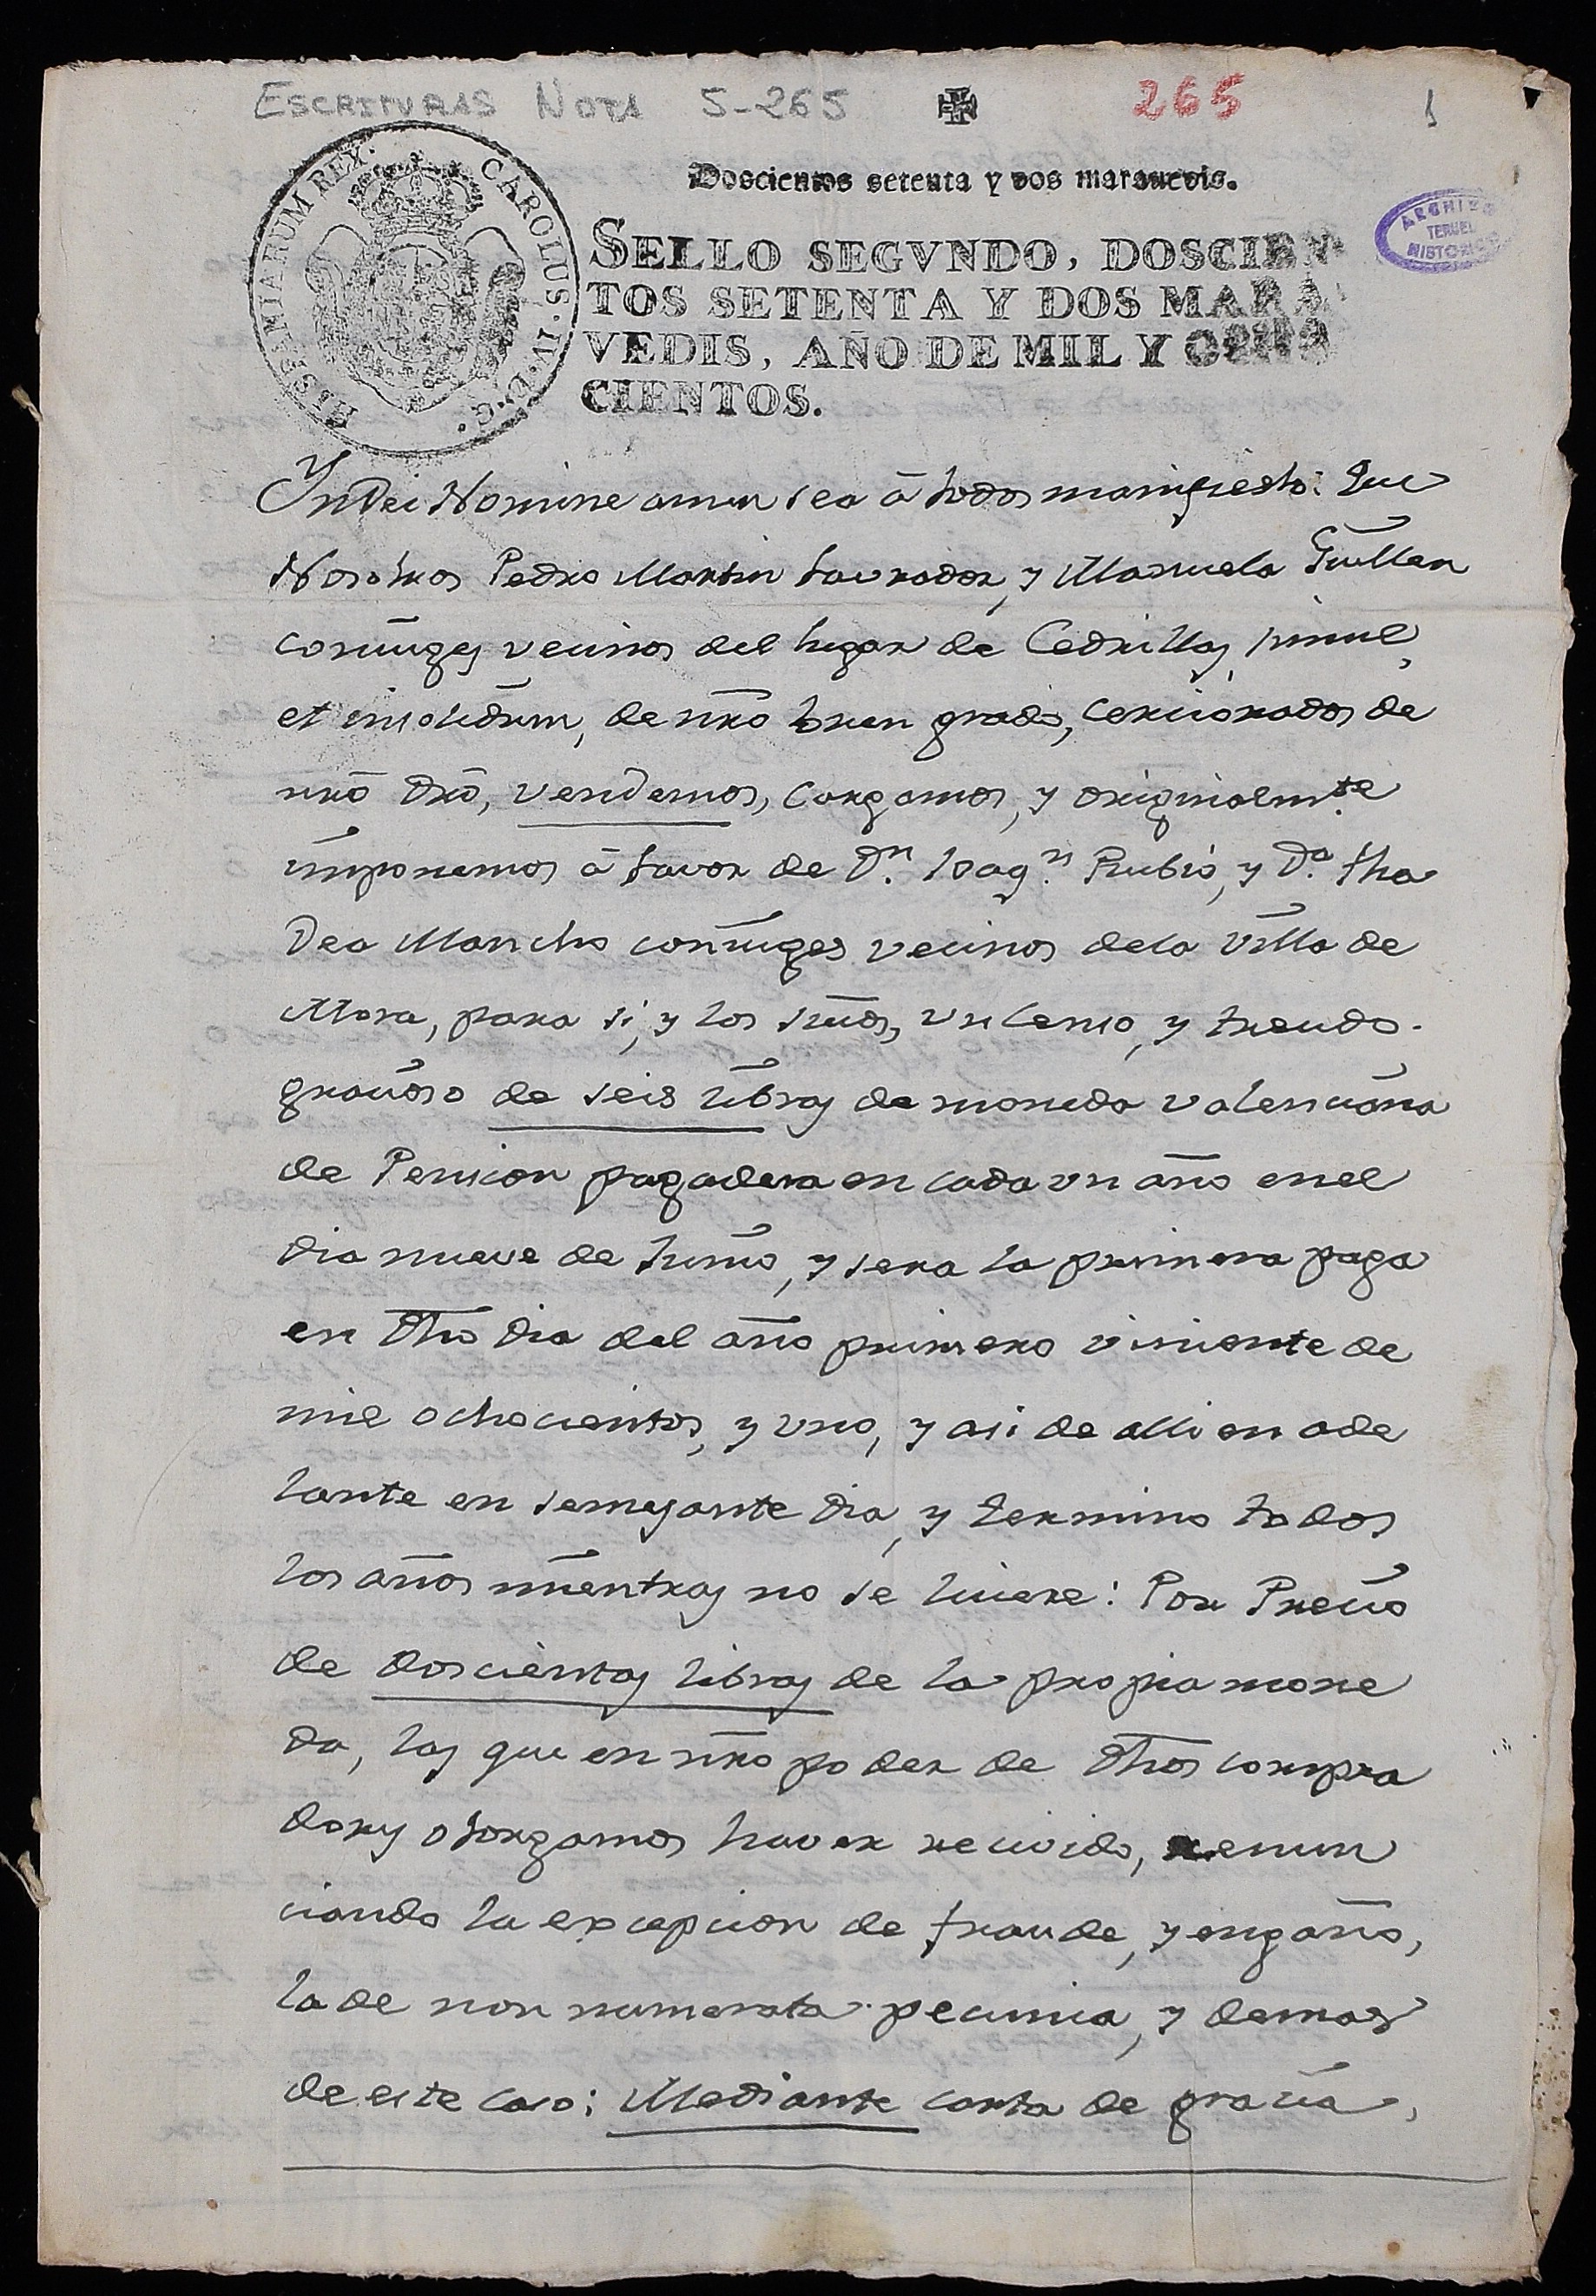 ESCRITURAS NOTA 5-265 265 1
Doscientos setenta y dos maravedis.
HISPANIARUM REX. CAROLUS. IV. D. G.
ARCHIVO
TERUEL
HISTORICO
SELLO SEGVNDO, DOSCIEN
TOS SETENTA Y DOS MARA
VEDIS, AÑO DE MIL Y OCHO
CIENTOS.
In Dei Nomine amen sea â todos manifiesto: Que
Nosotros Pedro Martin Lavrador, y Manuela Guillen
coniuges vecinos del lugar de Cedrillas, simul,
et insolidum, de nr̃o buen grado, cerciorados de
nr̃o dr̃o, vendemos, cargamos, y originalm.te
imponemos â favor de D.n Joaq.n Rubio, y D.a Tha
dea Mancho coniuges vecinos dela Villa de
Mora, para si, y los suios, vn censo, y treudo
gracioso de seis libras de moneda valenciana
de Pension pagadera en cada vn año enel
dia nueve de Junio, y sera la primera paga
en dh̃o dia del año primero viniente de
mil ochocientos, y vno, y asi de alli en ade
lante en semejante dia, y termino todos
los años mientras no se luiere: Por Precio
de doscientas libras de la propia mone
da, las que en nr̃o poder de dh̃os compra
dores otorgamos haver recivido, renun
ciando la excepcion de fraude, y engaño,
la de non numerata pecunia, y demas
de este caso: Mediante carta de gracia,